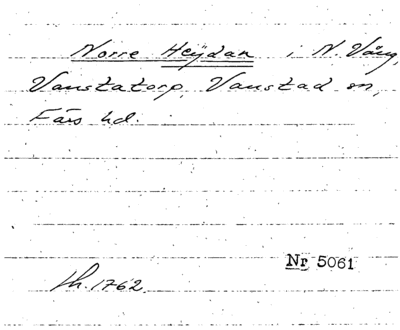 Norre Heÿdan i N. Vång,
Vanstatorp, Vanstad sn,
Färs hd.
Nr 5061
Lh. 1762.